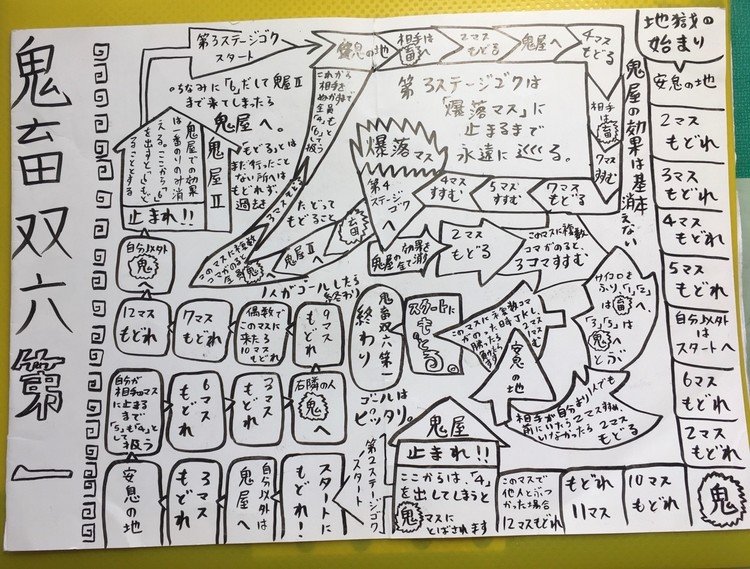 鬼畜双六第一
地獄の
始まり
安息の地
2マス
もどれ
3マス
もどれ
4マス
もどれ
5マス
もどれ
自分以外
は
スタートへ
6マス
もどれ
2マス
もどれ
鬼
10マス
もどれ
もどれ
11マス
このマスで
他人とぶつ
かった場合
12マスもどれ
鬼屋
止まれ!!
ここからは、「4」
を出してしまうと
鬼マスに
とばされます
第2ステージゴク
スタート
スタートに
もどれ!
自分以外は
鬼屋へ
3マス
もどれ
安息の地
自分が
相手のマス
に止まる
まで
「5」も「4」と
して扱う
6マス
もどれ
3マス
もどれ
右隣の人
鬼へ
9マス
もどれ
偶数で
このマスに
来たら
10マスもどれ
7マス
もどれ
12マス
もどれ
自分以外
鬼へ
鬼屋Ⅱ
止まれ!!
鬼屋での効果
は一番のりのみ消
える。ここから「6」
を出すと「1」とす
ることとする
第3ステージゴク
スタート
安息の地
相手は
畜へ
2マス
もどる
鬼屋へ
4マス
もどる
相手は
畜へ
7マス
すすむ
7マス
もどる
5マス
すすむ
4マス
すすむ
爆落マス
第4
ステージゴク
へ
第3ステージゴクは
「爆落マス」に
止まるまで
永遠に巡る。
鬼屋の効果は基本
消えない
ちなみに「6」だして鬼屋Ⅱ
まで来てしまったら
鬼屋へ。
もどるとは
まだ行ったこと
ない所へは
もどれず、
過去を
たどって
もどること
これから
相手を
ぬかすまで
全員
「4」も「6」と
扱う
3マスもどる
このマスに複数
コマがのると
全員鬼へ
鬼屋Ⅱへ
畜
鬼屋の効果を
全て消す
2マス
もどる
このマスに複数
コマがのると、
3コマすすむ
サイコロを
ふり、「1」「2」
は畜へ
「3」「5」は
鬼へ
とぶ
相手が自分より1人でも
前にいたら2マスすすめ、
いなかったら2マス
もどる
安息の地
このマスに複数コマ
がのった時
勝ったら
2マス
すすむ
スタートに
もどる。
鬼畜双六第一
終わり
1人がゴールしたら
終わり
ゴールは
ピッタリ。